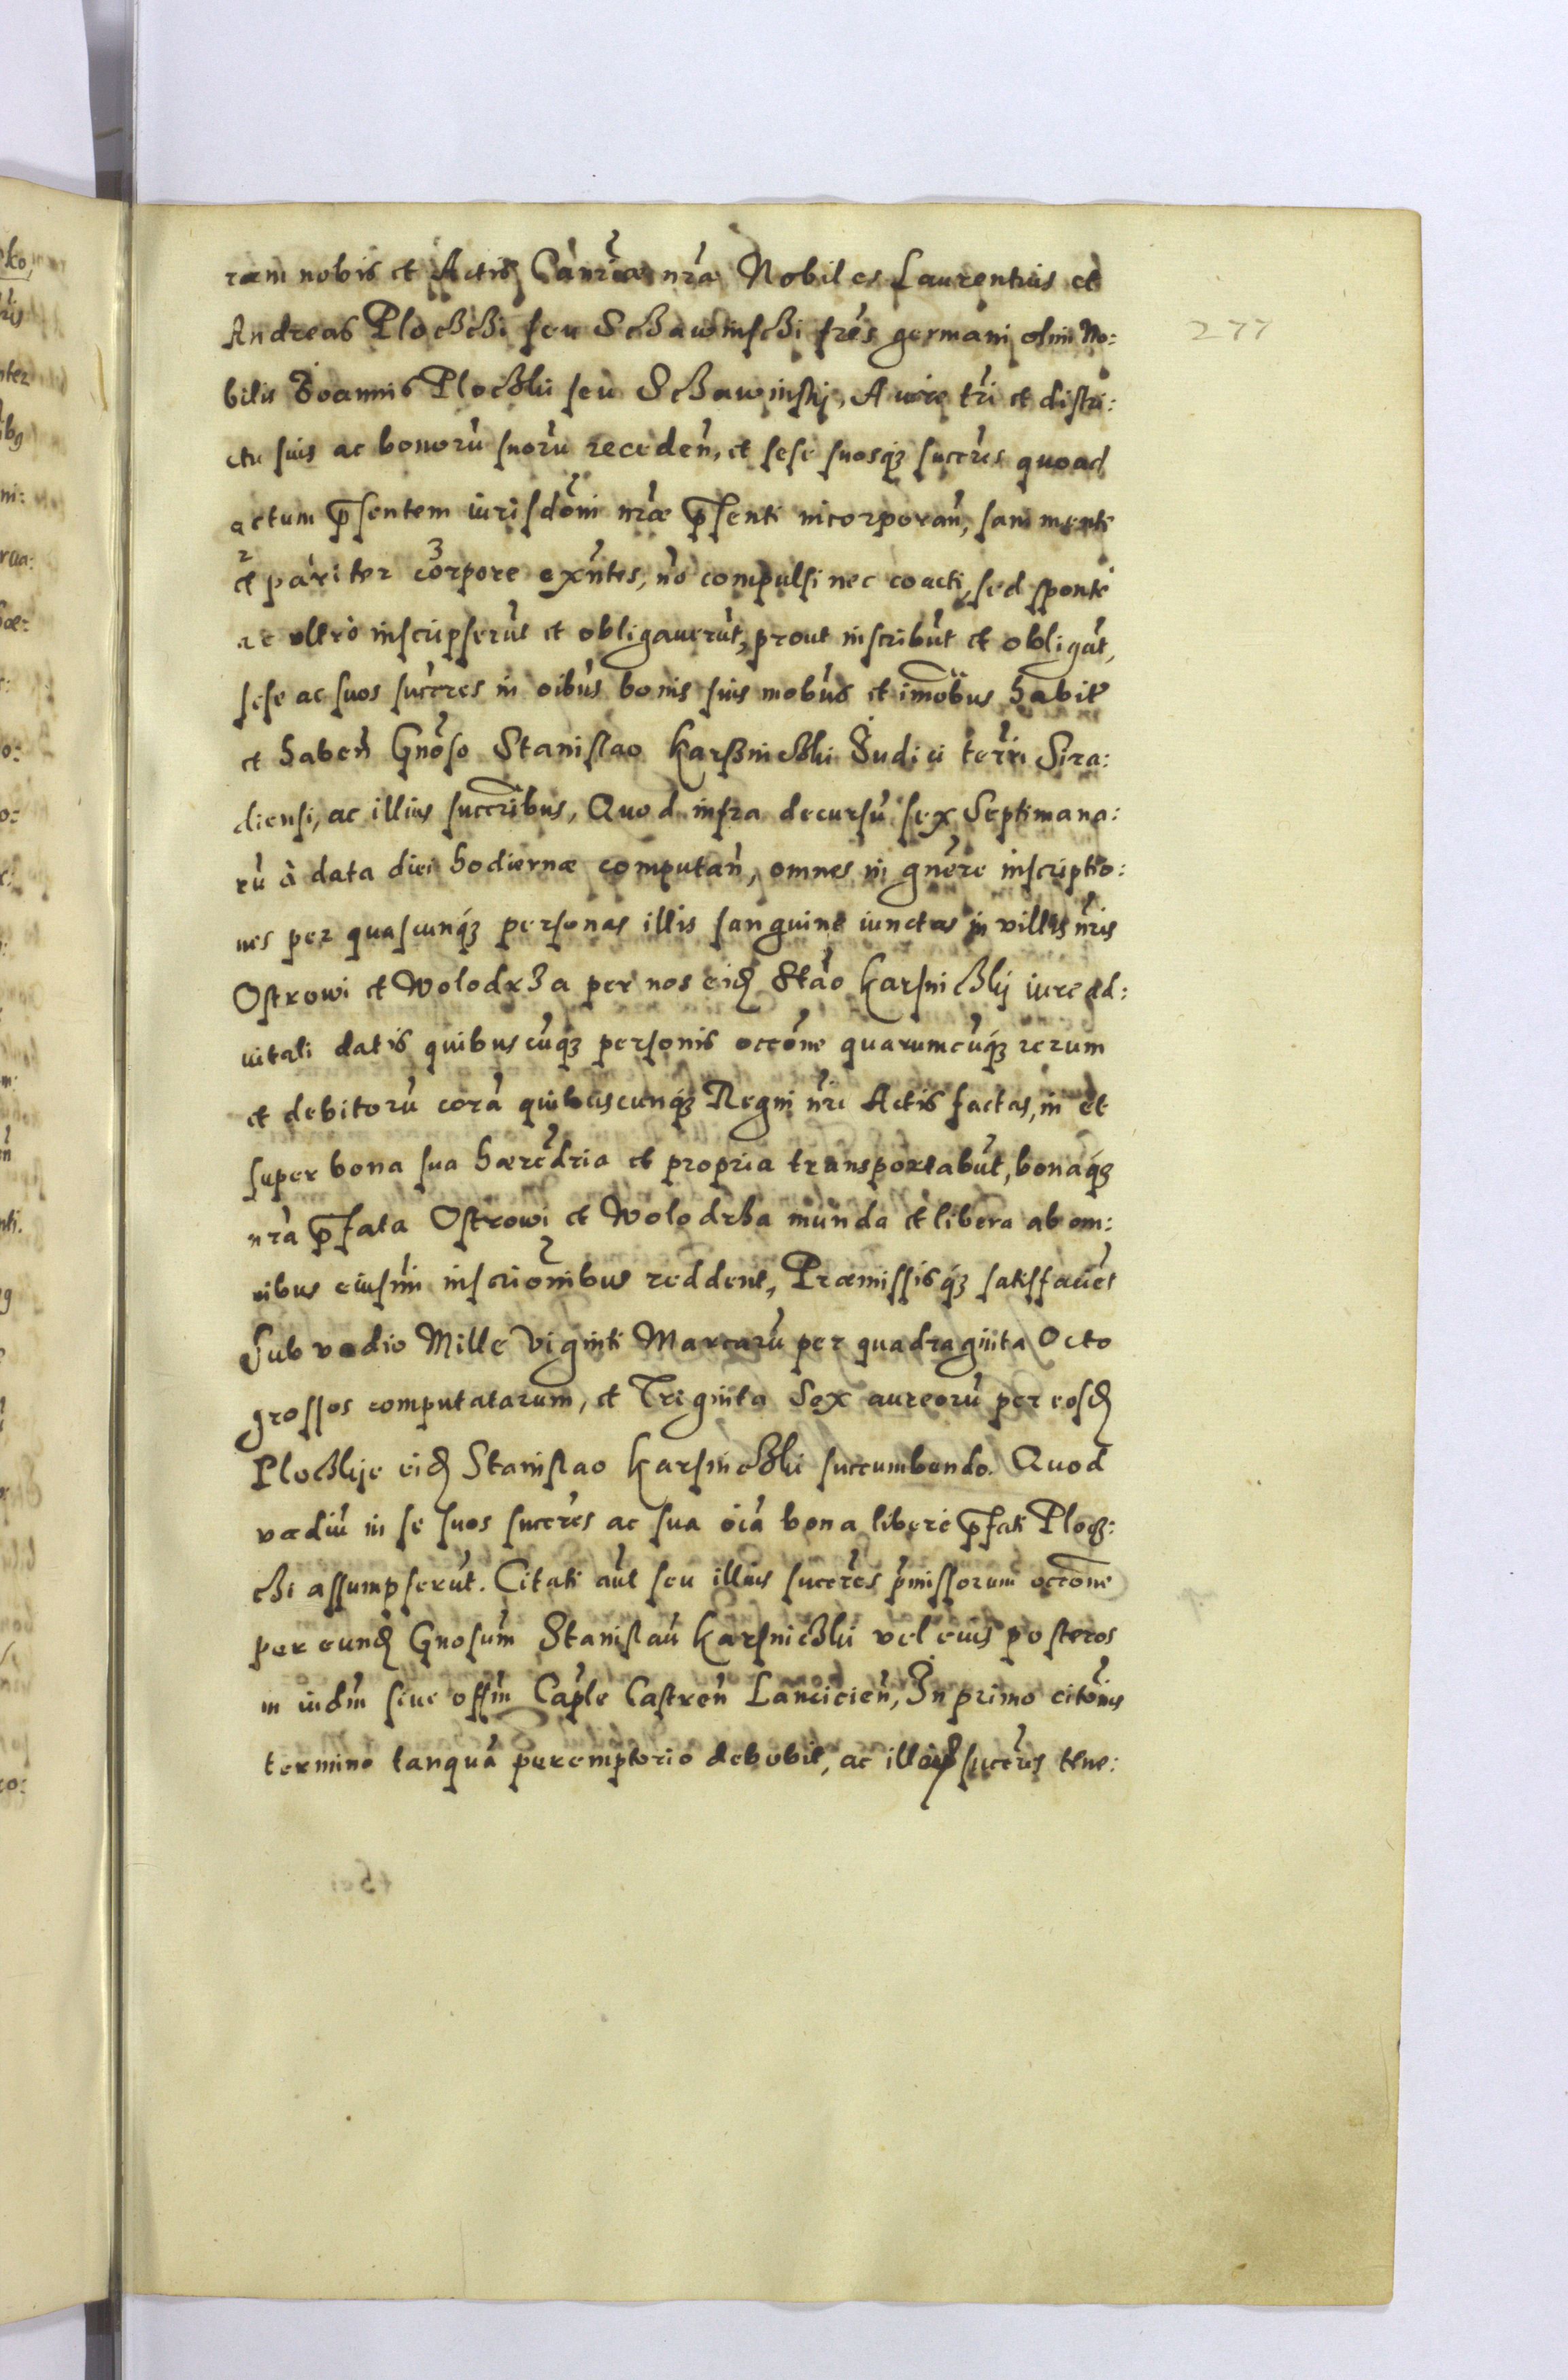 ram nobis et Actis Canrae nrae Nobiles Laurentius et
Andreas Ploczchi seu Sczawinschi fres germani olim No:
bilis Joannis Ploczkii seu Sczawinskj, A iure tri et distri:
ctu suis ac bonorũ suorũ receden, et sese suosq3 succres quoad
actum psentem iurisdoni nrae psenti incorporan, sani mente
et pariter corpore exntes, nõ compulsi nec coacti, sed sponte
ac ultrò inscripserũt et obligaverũt, prout inscribũt et obligãt,
sese ac suos succres in oibus bonis suis mobũs et imobus habit
et haben Gnoso Stanislao Karsniczkii Judici terri Sira:
diensi, ac illius succribus, Quod infra decursũ sex Septimana:
rũ à data diei hodiernae computan, omnes in gnere inscriptio:
nes per quascunq3 personas illis sanguine iunctas in villis nris
Ostrowi et Wolodrza per nos eid Stao Karsniczkij iure ad:
vitali datis quibuscũq3 personis occone quarumcũq3 rerum
et debitorũ corã quibuscunq3 Regni nri Actis factas, in et
super bona sua haeredria et propria transportabũt, bonaq3
nra pfata Ostrowi et Wolodrza munda et libera ab om:
nibus eiusmi inscrionibus reddent, Praemissisq3 satisfacient
Sub vadio Mille Viginti Marcarũ per quadraginta Octo
grossos computatarum, et Triginta Sex aureorũ per eosd
Ploczkije eid Stanislao Karsniczkii succumbendo. Quod
vadiũ in se suos succres ac sua oia bona libere pfati Plocz:
chi assumpserũt. Citati aut seu illius succres pmissorum occone
per eund Gnosum Stanislaũ Karsniczkii vel eius posteros
in iudm sive offm Caple Castren Lancicien, In primo citonis
termino tanquã peremptorio debebit, ac succres tene:
277